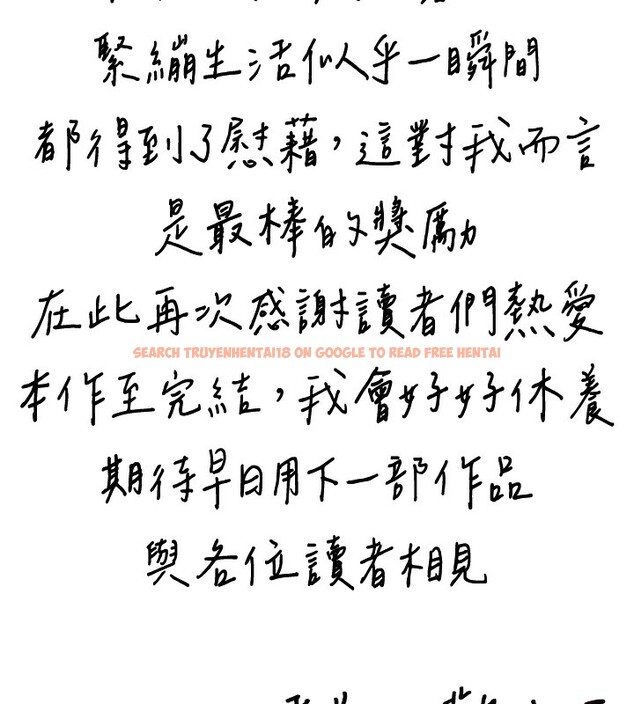 緊繃生活似乎一瞬間
都得到了慰藉，這對我而言
是最棒的獎勵
在此再次感謝讀者們熱愛
SEARCH TRUYENHENTAI18 ON GOOGLE TO READ FREE HENTAI
本作至完結，我會好好休養
期待早日用下一部作品
與各位讀者相見